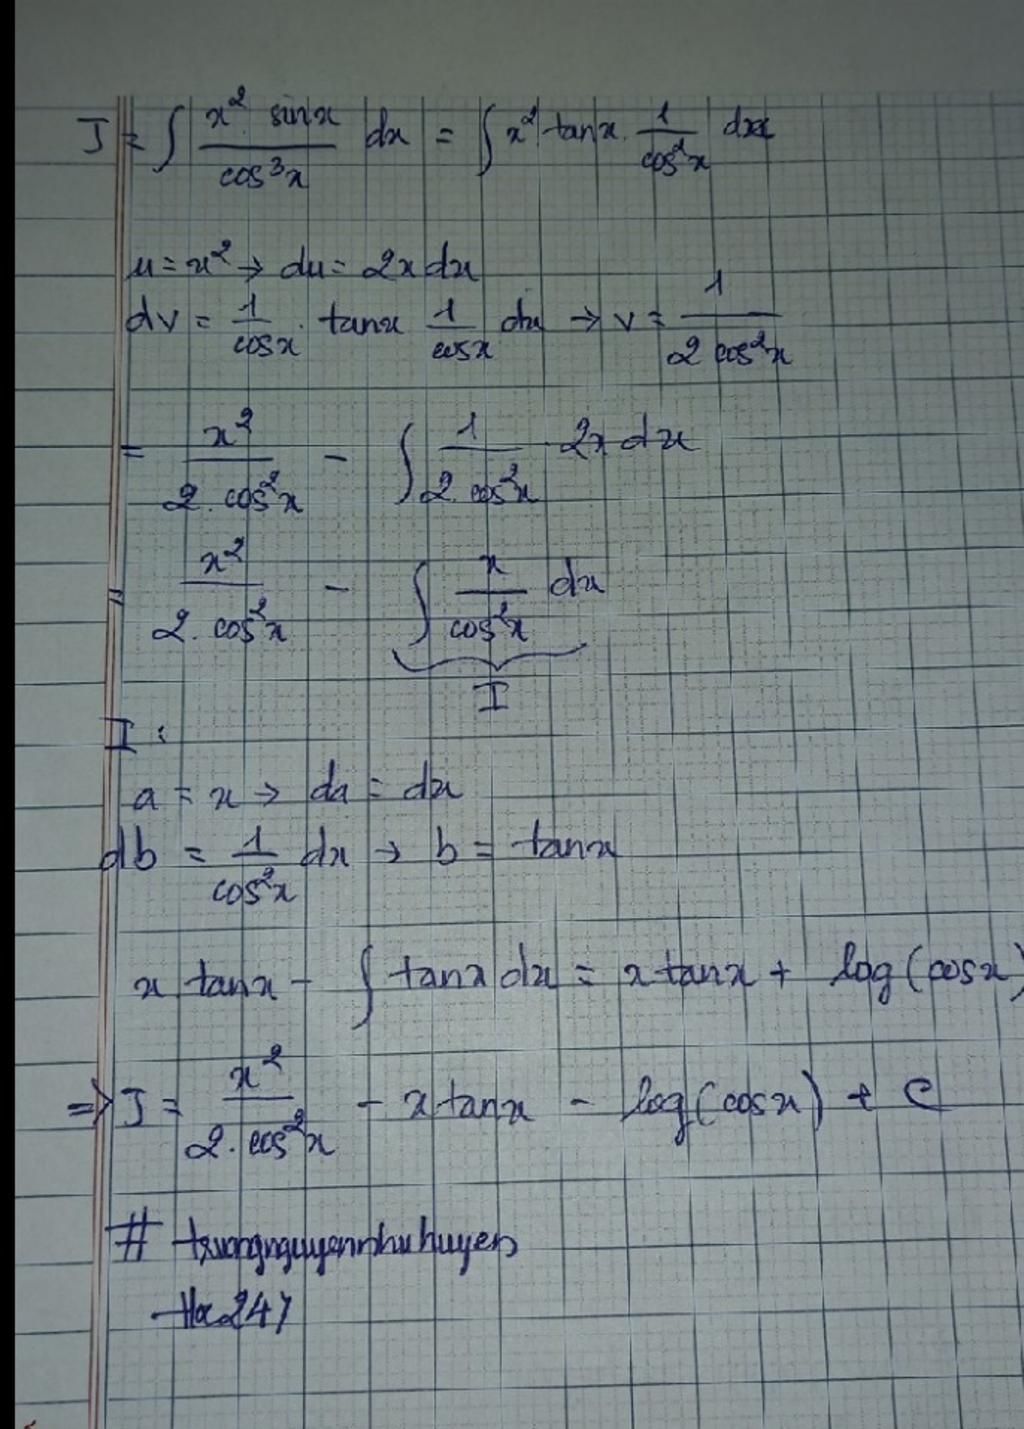 J = ∫ x² sinx / cos³x dx = ∫ x² tanx . 1/cos²x dx
u = x² → du = 2x dx
dv = 1/cosx . tanx 1/cosx dx → v = 1/(2 cos²x)
= x²/(2 . cos²x) - ∫ 1/(2 . cos²x) 2x dx
= x²/(2 . cos²x) - ∫ x/cos²x dx
I
I :
a = x → da = dx
db = 1/cos²x dx → b = tanx
x tanx - ∫ tanx dx = x tanx + log(cosx)
=> J = x²/(2 . cos²x) - x tanx - log(cosx) + C
# truongnguyennhuhuyen